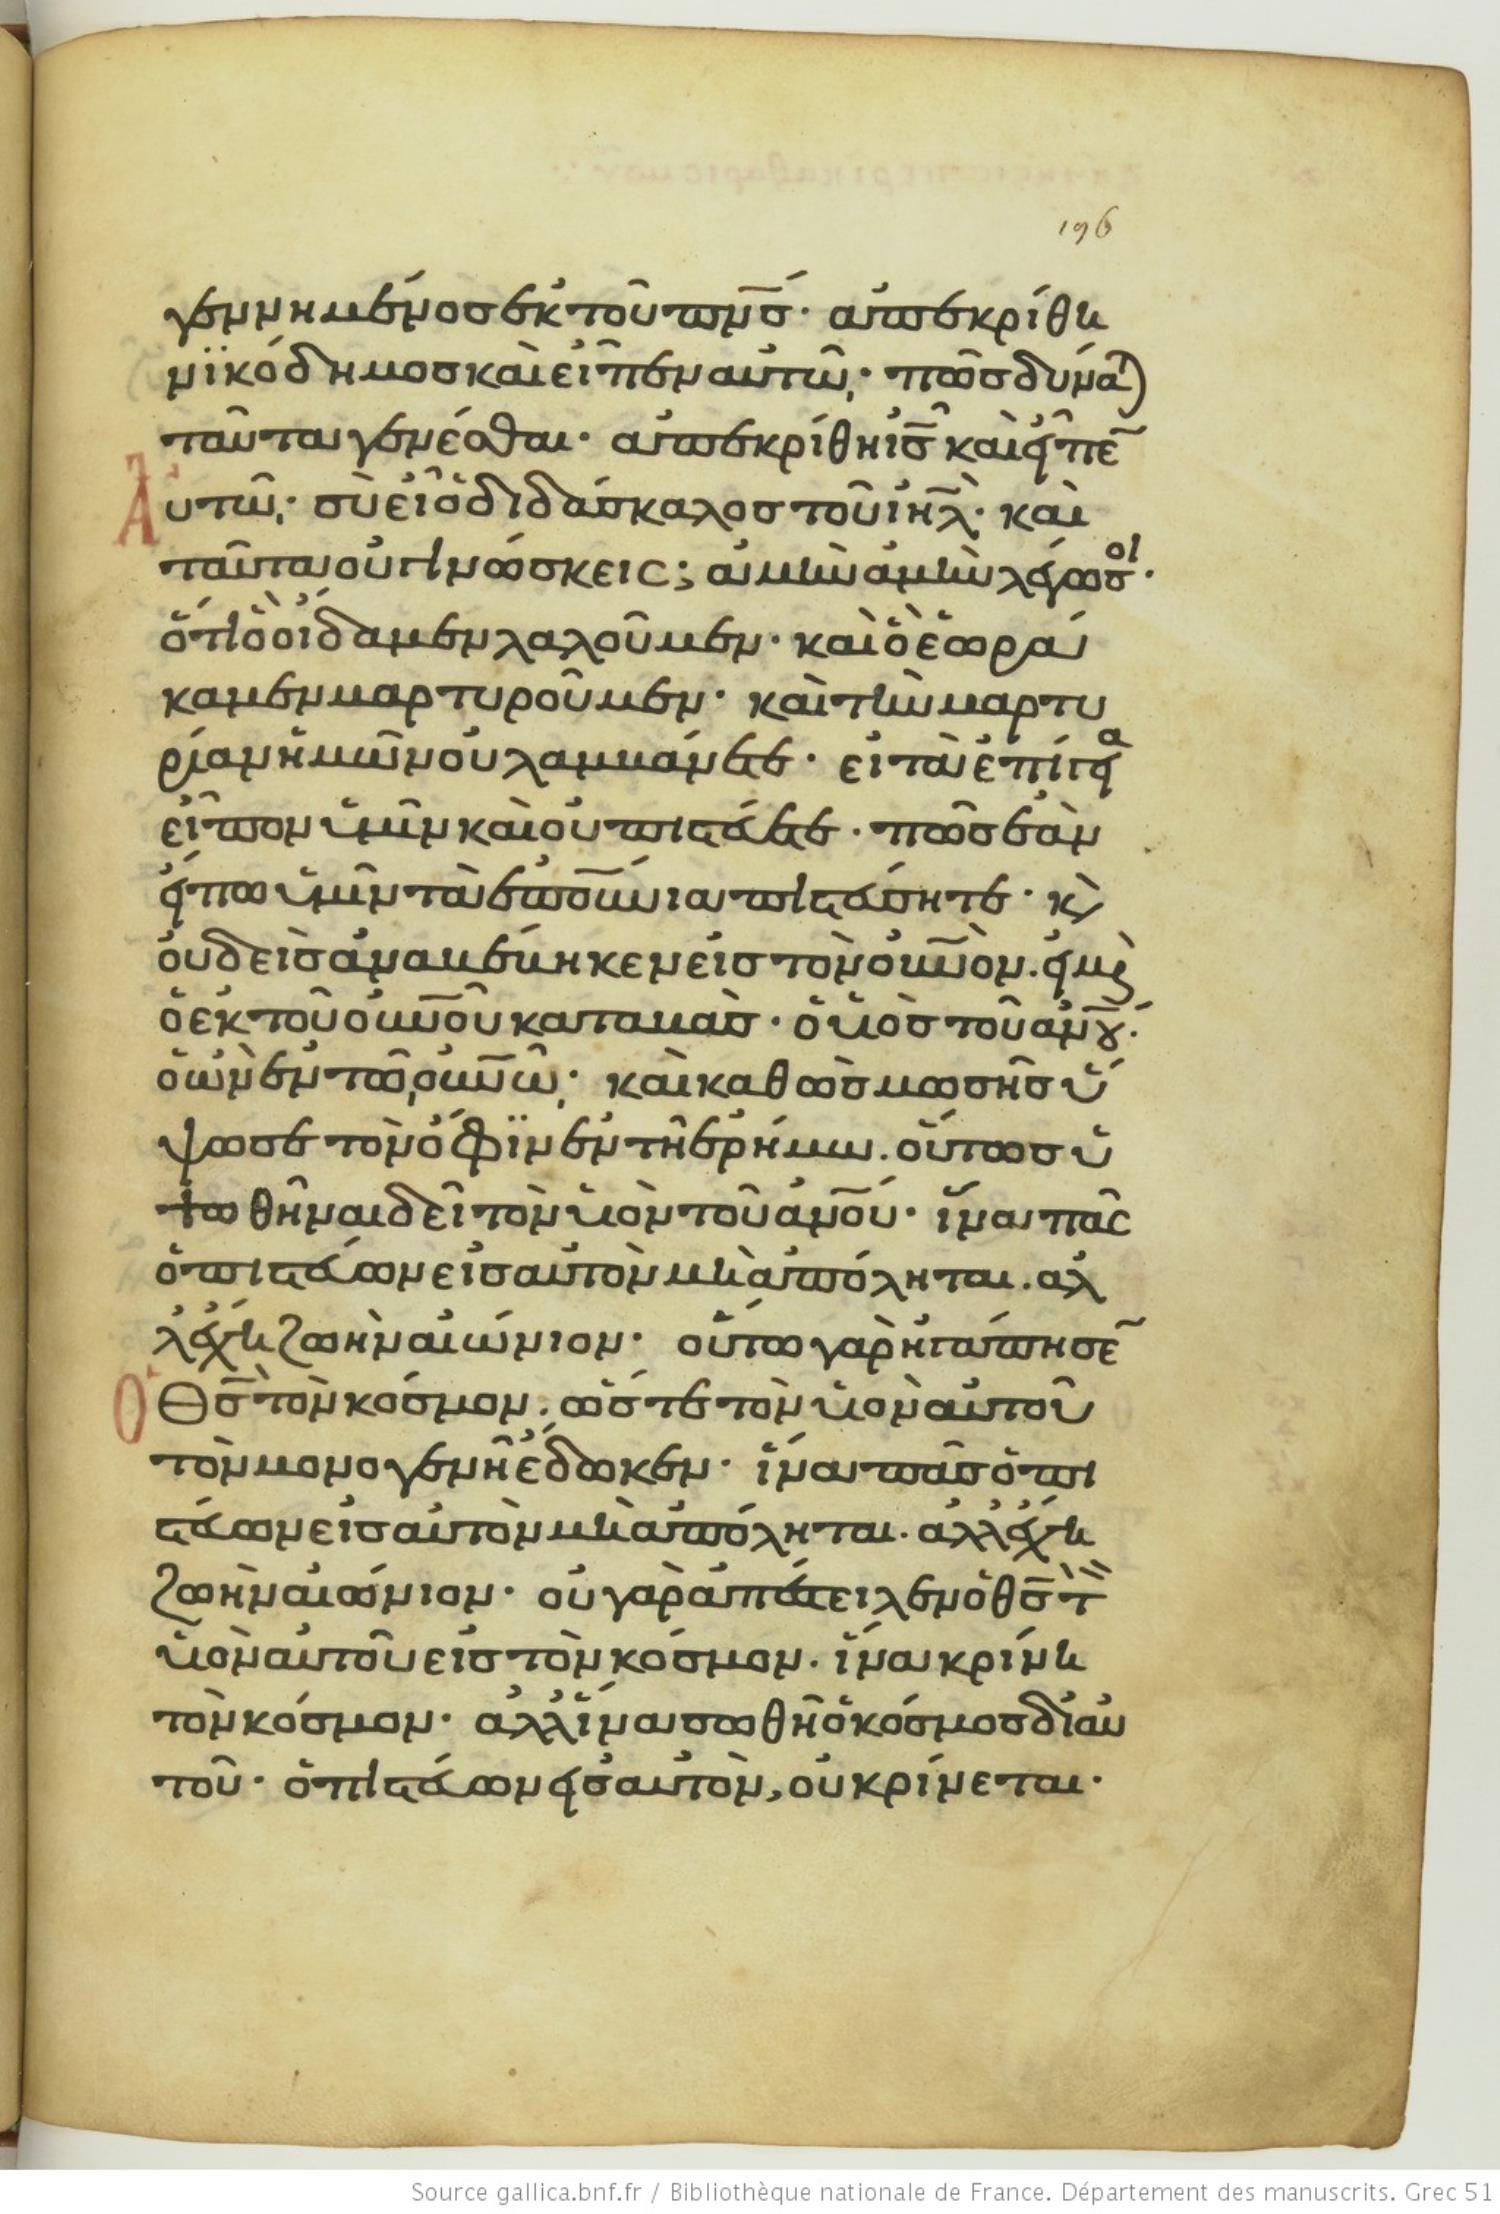 196
γεννημένος ἐκ τοῦ πν̅ς· ἀπεκρίθη
νϊκόδημος καὶ εἶπεν αὐτῶ· πῶς δύνα
ταῦτα γενέσθαι· ἀπεκρίθη ἰς̅ καὶ εἶπε
Αυτῶ· σὺ εἶ ὁ διδάσκαλος τοῦ ιη̅λ· καὶ
ταῦτα οὐ γινώσκεις; ἀμὴν ἀμὴν λέγω σοι·
ὅτι ὃ οἴδαμεν λαλοῦμεν· καὶ ὃ ἑωρά
καμεν μαρτυροῦμεν· καὶ τὴν μαρτυ
ρίαν ἡμῶν οὐ λαμβάνετε· εἰ τὰ ἐπίγεια
εἶπον ὑμῖν καὶ οὐ πιστεύετε· πῶς ἐὰν
εἴπω ὑμῖν τὰ ἐπου̅νια πιστεύσητε· κὶ
οὐδεὶς ἀναβέβηκεν εἰς τὸν οὐ̅νὸν. εἰ μὴ
ὁ ἐκ τοῦ οὐ̅νοῦ καταβὰς· ὁ υἱὸς τοῦ ἀν̅ου·
ὁ ὢν ἐν τῶ οὐ̅νῶ· καὶ καθὼς μωσῆς ὕ
ψωσε τὸν ὄφϊν ἐν τῆ ἐρήμω. οὕτως ὑ
ψωθῆναι δεῖ τὸν υἱὸν τοῦ ἀν̅ου· ἵνα πᾶς
ὁ πιστεύων εἰς αὐτὸν μὴ ἀπόληται. ἀλ
λ' ἔχη ζωὴν αἰώνιον· οὕτω γαρ ἠγάπησε
Ο Θς̅ τὸν κόσμον. ὥστε τὸν υἱὸν αὐτοῦ
τὸν μονογενῆ ἔδωκεν· ἵνα πᾶς ὁ πι
στεύων εἰς αὐτὸν μὴ ἀπόληται. ἀλλ' ἔχη
ζωὴν αἰώνιον· οὐ γαρ ἀπέστειλεν ὁ θς̅ τὸν
υἱὸν αὐτοῦ εἰς τὸν κόσμον. ἵνα κρίνη
τὸν κόσμον· ἀλλ' ἵνα σωθῆ ὁ κόσμος δι' αὐ
τοῦ· ὁ πιστεύων εἰς αὐτὸν, οὐ κρίνεται·
Source gallica.bnf.fr / Bibliothèque nationale de France. Département des manuscrits. Grec 51